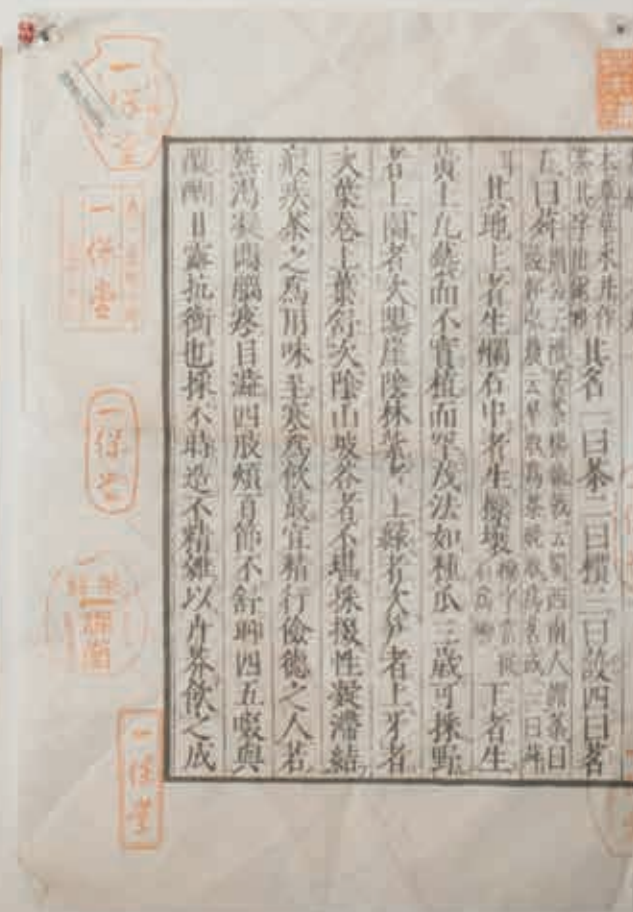 本草草木并作
茶其字出爾雅
其名一曰茶二曰檟三曰蔎四曰茗
五曰荈
周公云檟苦荼楊執戟云蜀西南人謂茶曰
蔎郭弘農云早取為茶晚取為茗或一曰荈
耳
其地上者生爛石中者生櫟壤
櫟字當從
石為礫
下者生
黃土凡藝而不實植而罕茂法如種瓜三歲可採野
者上園者次陽崖陰林紫者上綠者次笋者上牙者
次葉卷上葉舒次陰山坡谷者不堪採掇性凝滯結
瘕疾茶之為用味至寒為飲最宜精行儉德之人若
熱渴凝悶腦疼目澁四肢煩百節不舒聊四五啜與
醍醐甘露抗衡也採不時造不精雜以卉莽飲之成
一保堂
一保堂
一保堂
一保堂